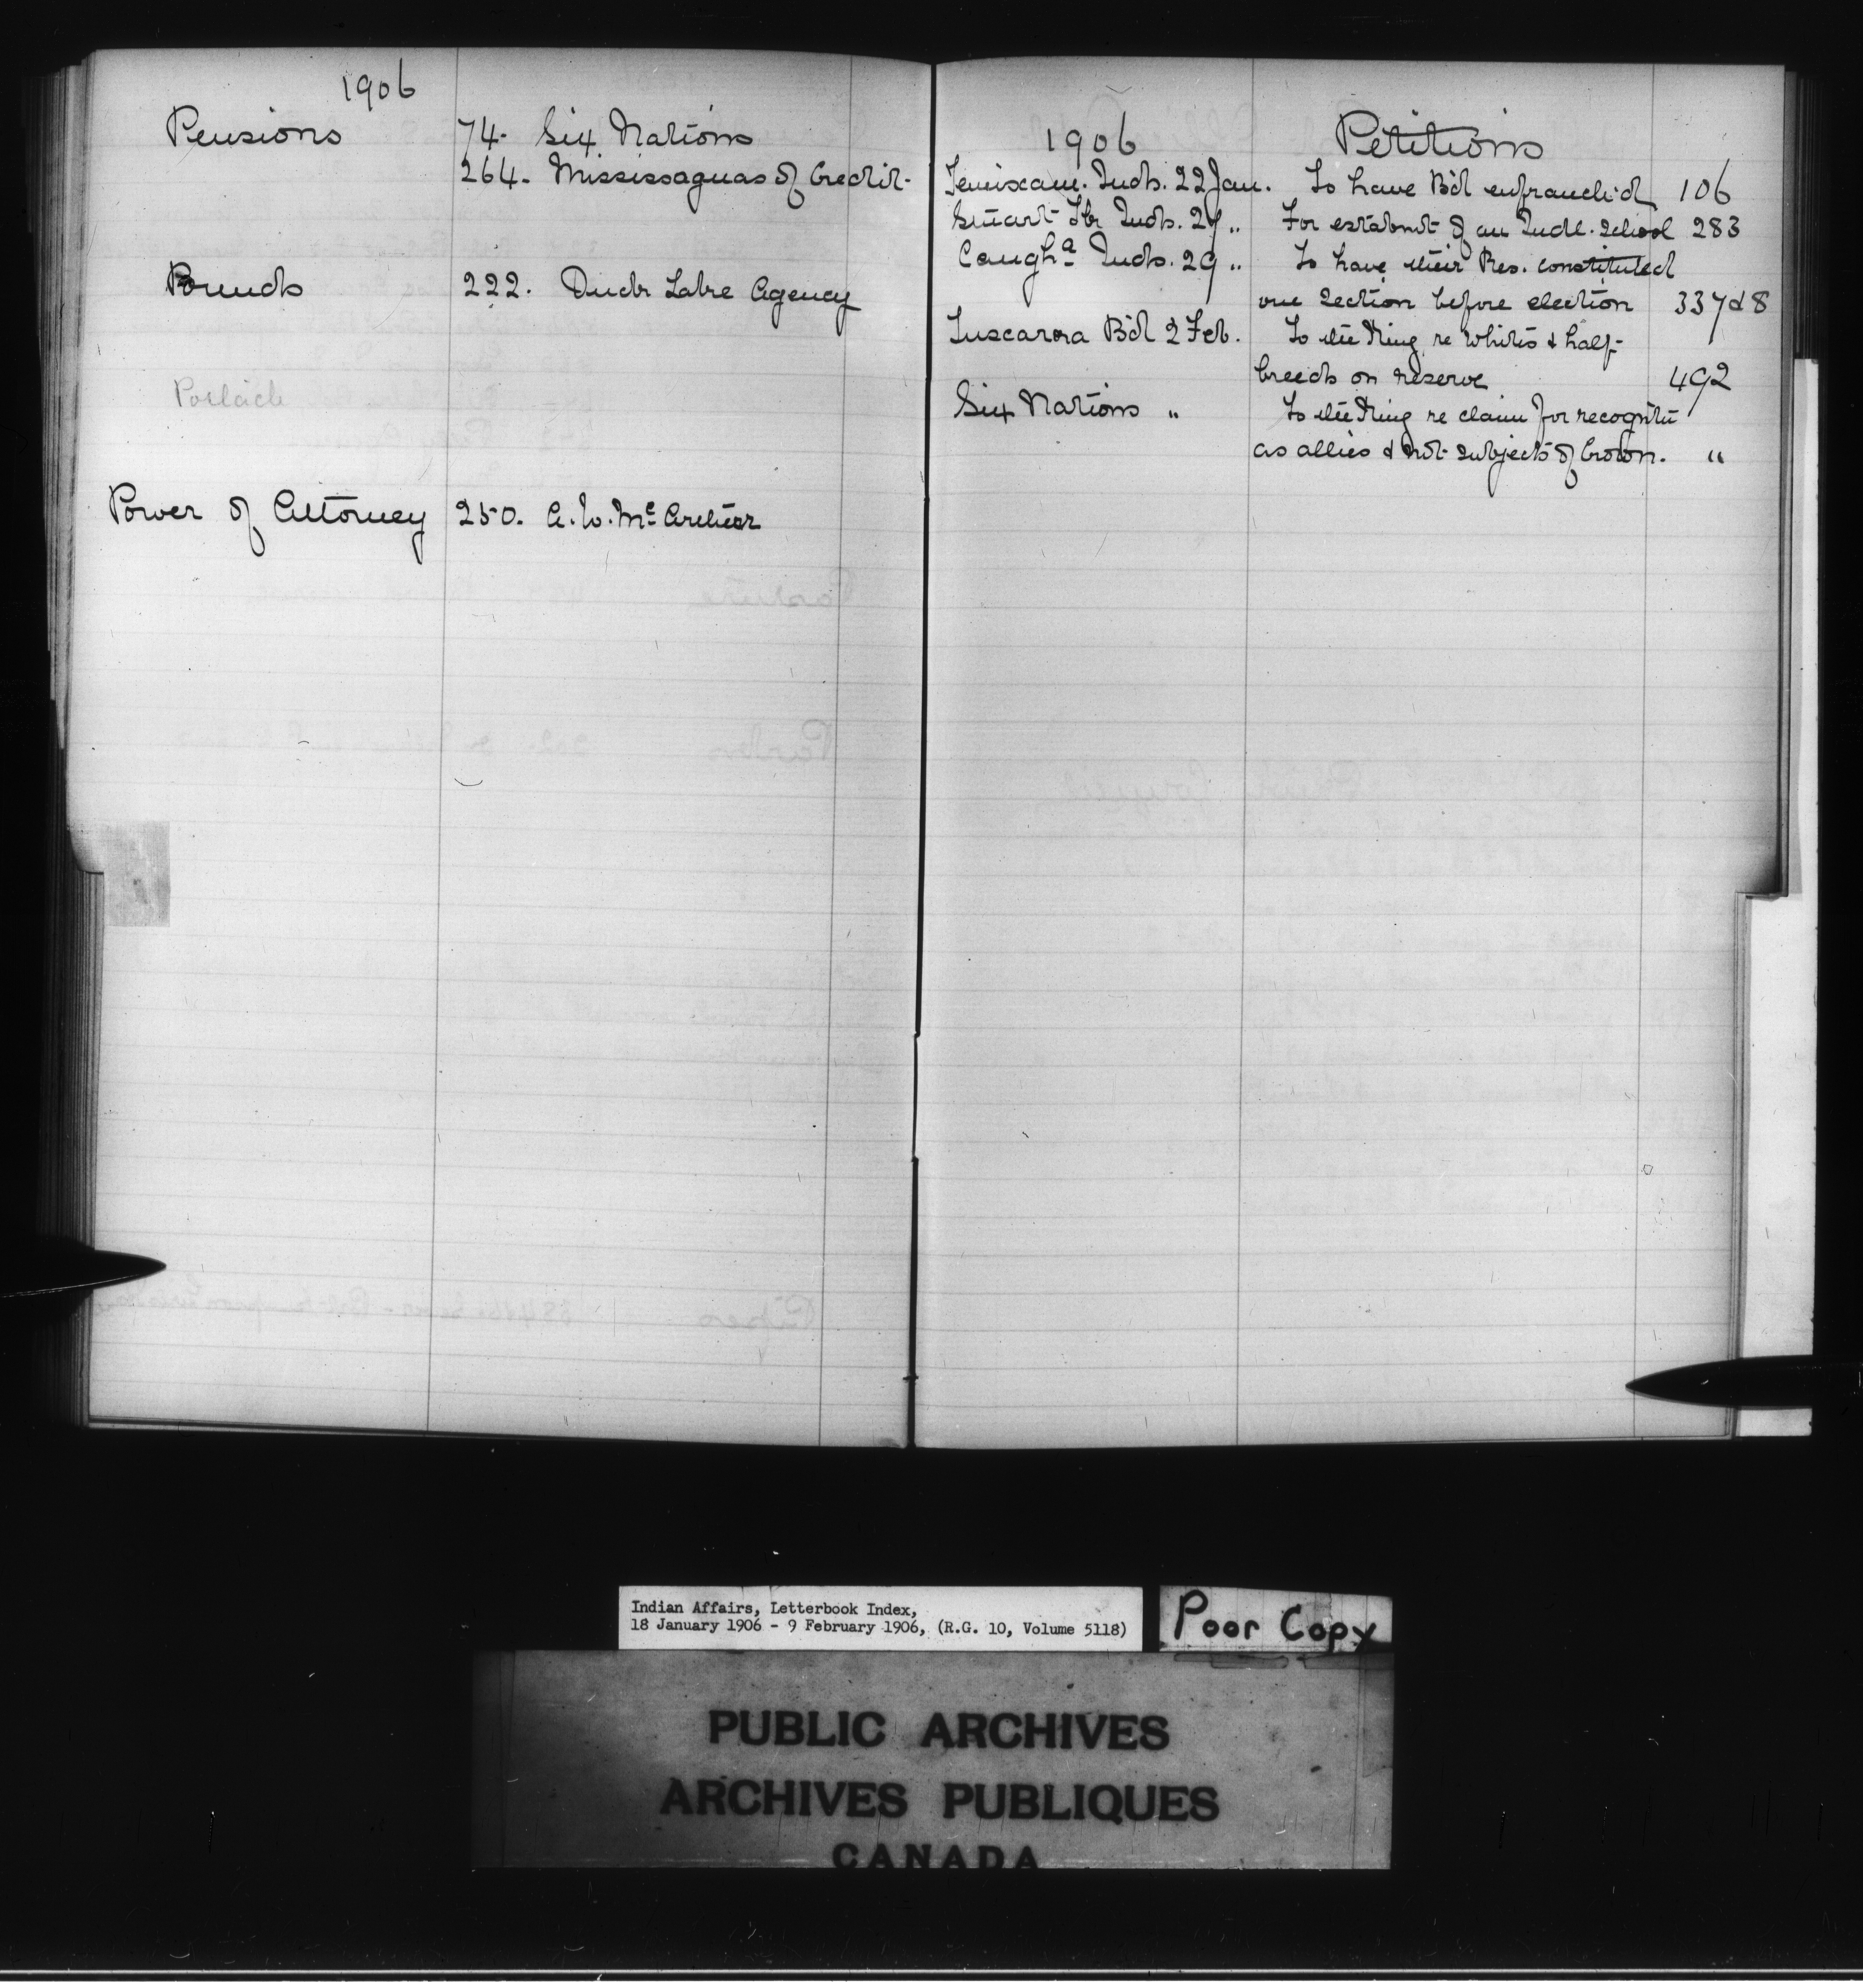 1906
Pensions 74. Six Nations
264. Mississaguas of Credit.
Pounds 222. Duck Lake Agency
Potlach
Power of Attorney 250. A. W. Mc Arthur
1906 Petitions
Temiscam. Inds. 22 Jan. To have B'd enfranch'd 106
Stuart Lk Inds. 27 " For establmt of an Indl. School 283
Caugha Inds. 29 " To have their Res. constituted
one section before election 337 & 8
Tuscarora B'd 2 Feb. To the King re Whites & half-
breeds on reserve 492
Six Nations " To the King re claim for recognitn
as allies & not subjects of Crown. "
Indian Affairs, Letterbook Index,
18 January 1906 - 9 February 1906, (R.G. 10, Volume 5118)
Poor Copy
PUBLIC ARCHIVES
ARCHIVES PUBLIQUES
CANADA